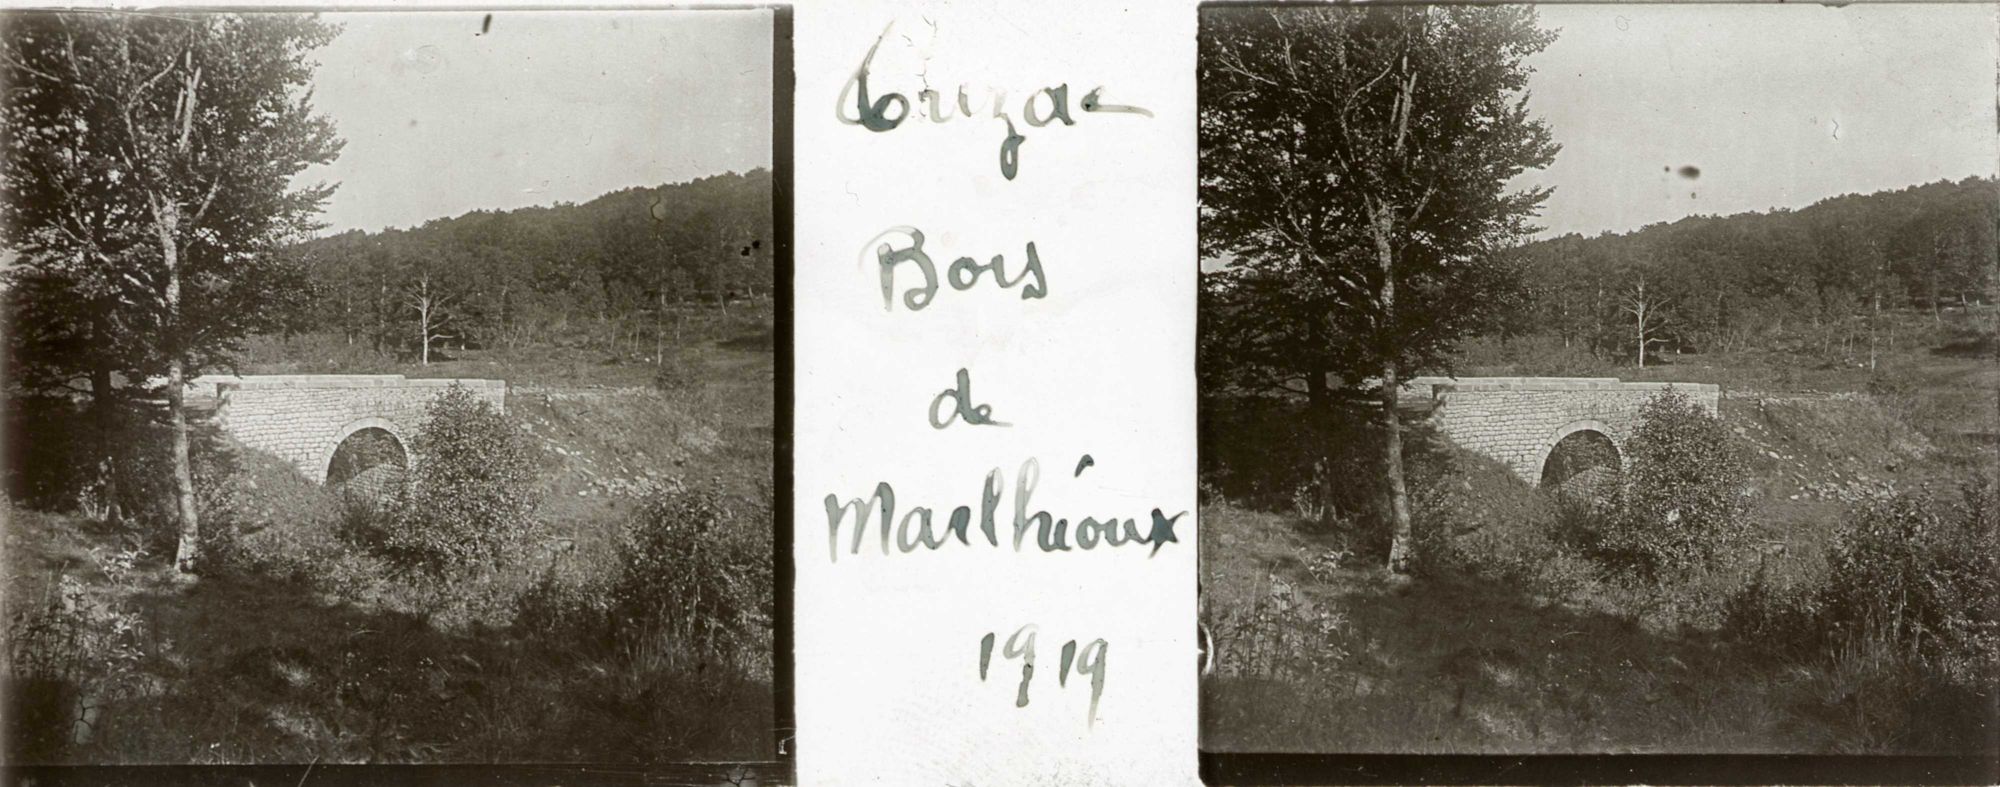 Cruzac
Bois
de
Marlhioux
1919